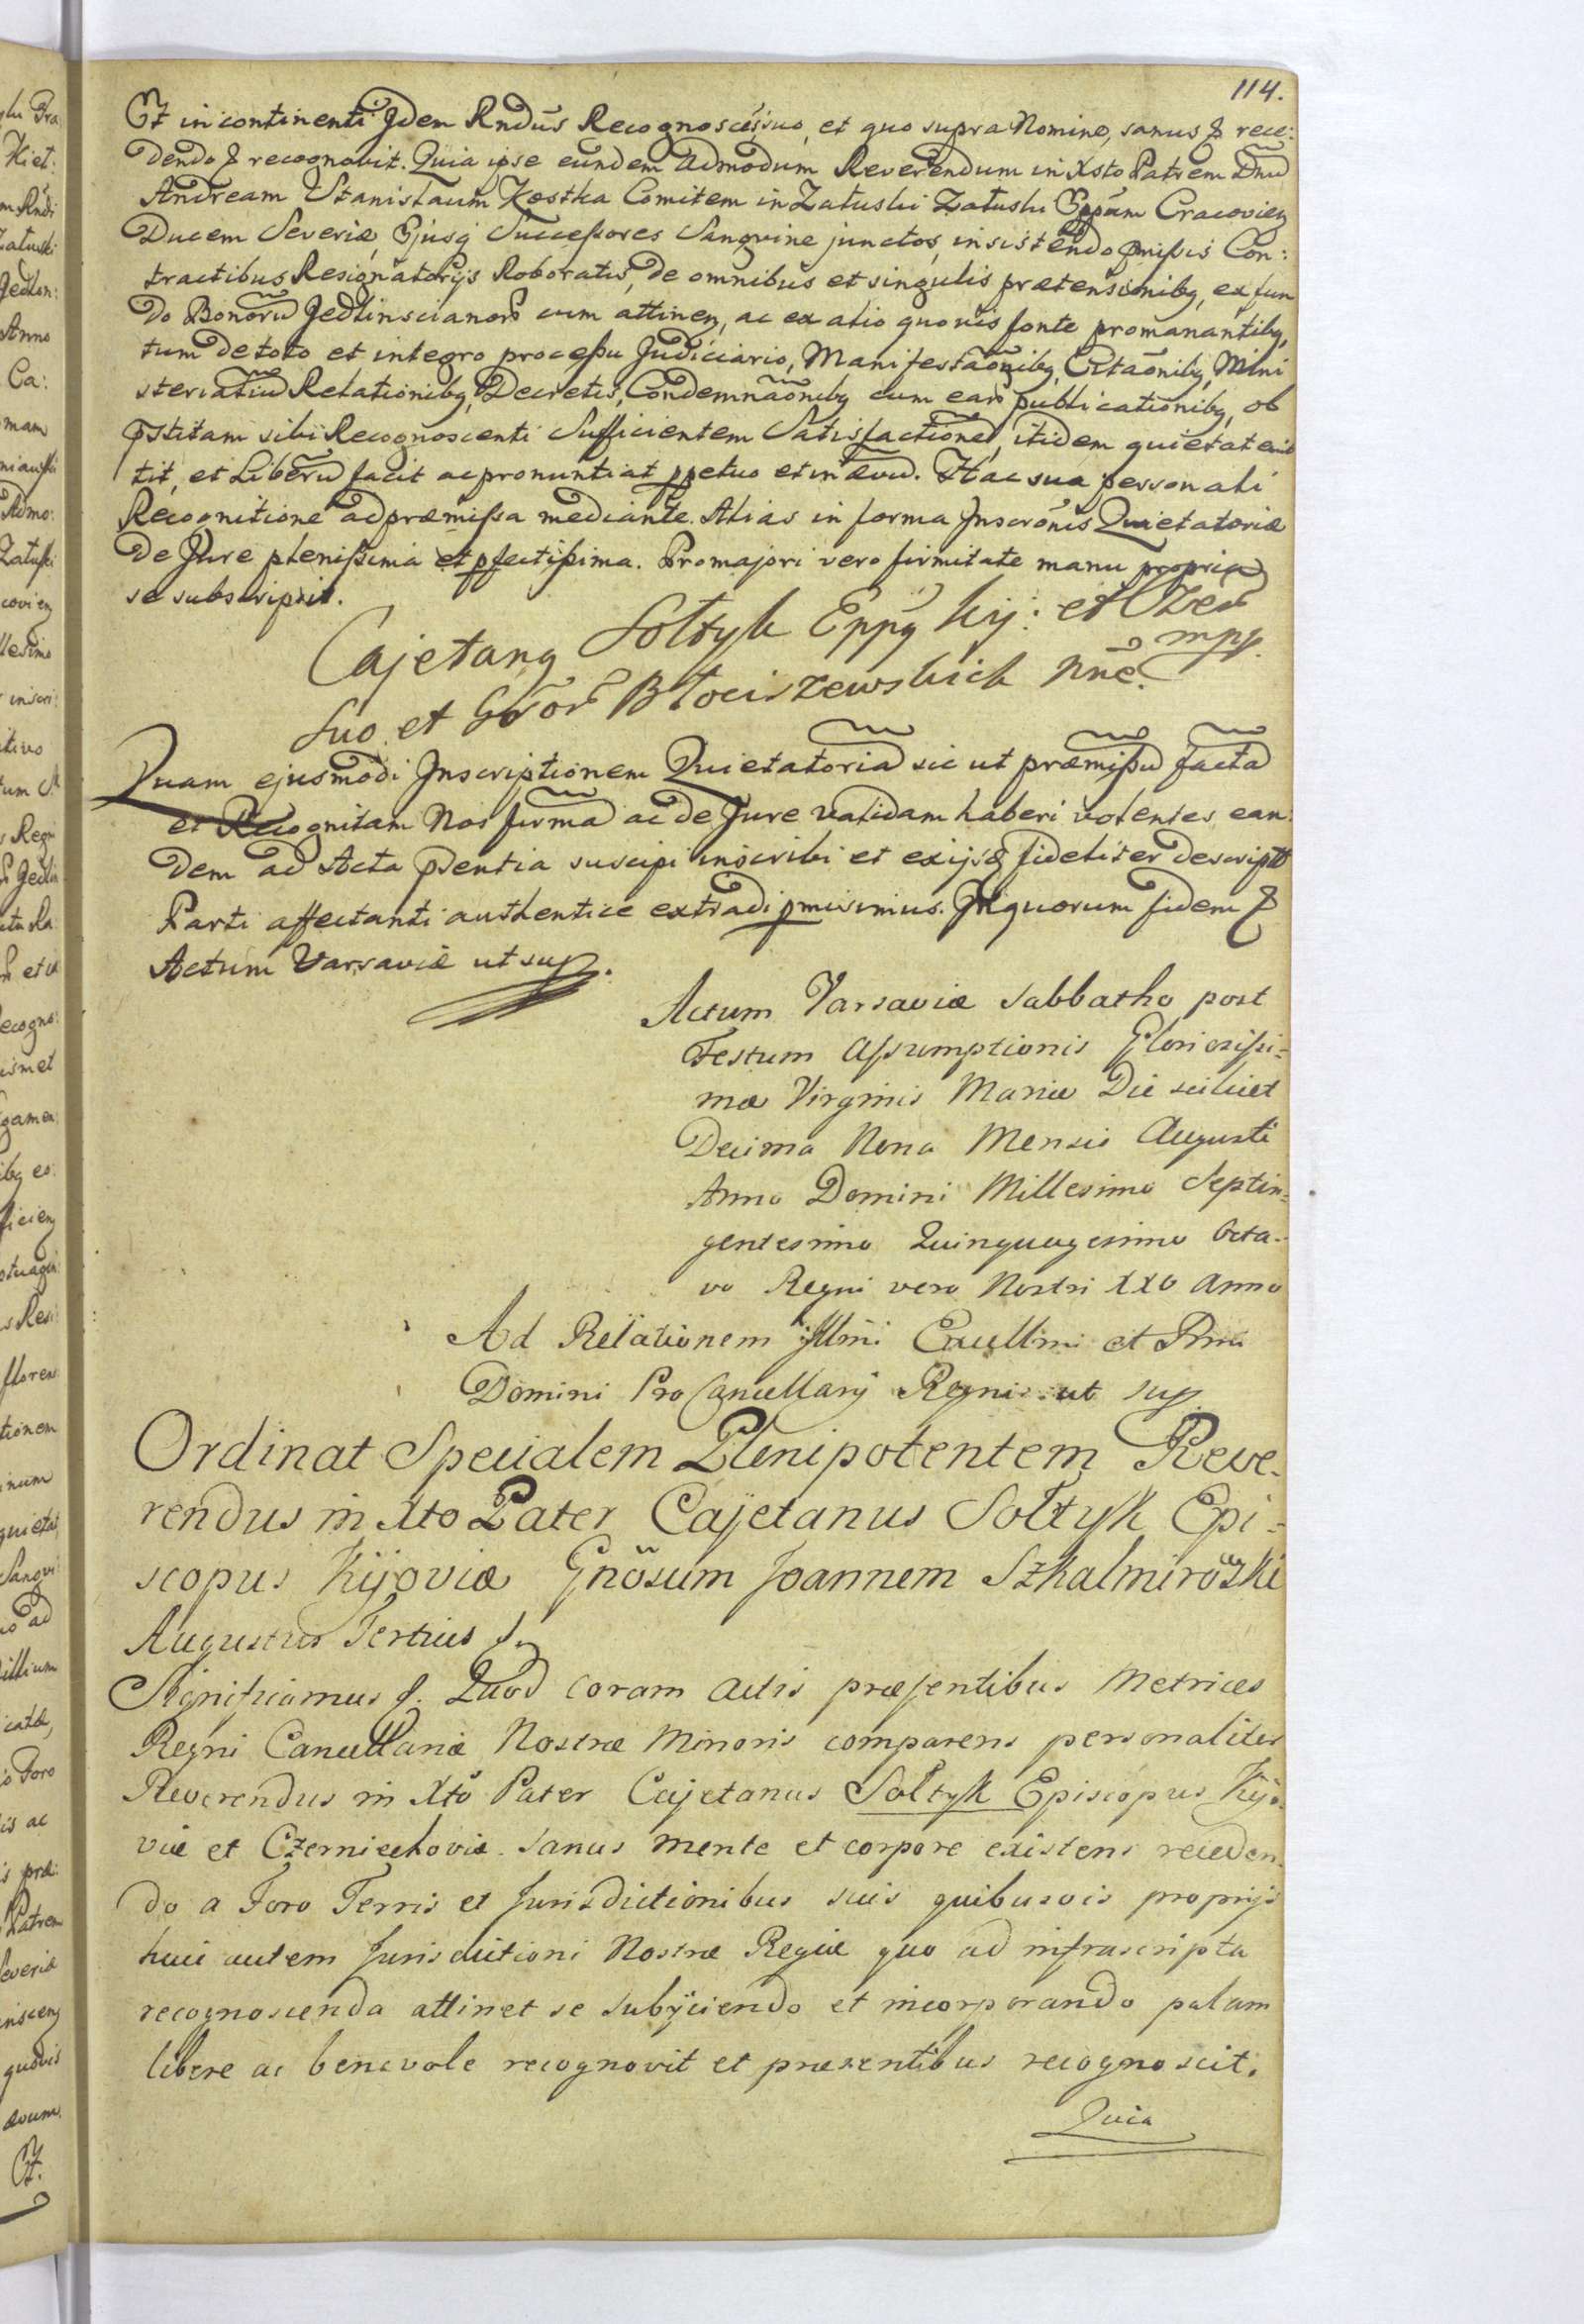 114.
Et in continenti Idem Rndus Recognoscens suo, et quo supra Nomine, sanus & rece:
dendo & recognovit. Quia ipse eundem Admodum Reverendum in Xsto Patrem Dnu
Andream Stanislaum Kostka Comitem in Załuski Załuski Eppum Cracovien
Ducem Severiæ, Ejusq Successores Sangvine junctos, insistendo pmissis Con:
tractibus Resignatorijs Roboratis, de omnibus et singulis prætensionibq, ex fun
do Bonoru Jedlinscianor cum attinen, ac ex alio quovis fonte promanantibq,
tum de toto et integro processu Judiciario, Manifestaonibq, Citaonibq, Mini
sterialiu Relationibq, Decretis, Condemnaonibq cum ear publicationibq, ob
pstitam sibi Recognoscenti Sufficientem Satisfactione, itidem quietat emit
tit, et Liberu facit ac pronuntiat ppetuo et in ævu. Hac sua personali
Recognitione ad præmissa mediante. Alias in forma Inscronis Quietatoriæ
de Jure plenissima et pfectissima. Pro majori vero firmitate manu propria
se subscripsit.
Cajetanq Sołtyk Eppq Kij: et Czer
mpp.
Suo et Gsor Błociszewskich Nne.
Quam ejusmodi Inscriptionem Quietatoria sic ut præmissu facta
et Recognitam Nos firma ac de Jure validam haberi volentes, ean
dem ad Acta psentia suscipi inscribi et exijsq fideliter descript
Parti affectanti authentice extradi pmisimus. In quorum fidem &
Actum Varsaviæ ut sup.
Actum Varsaviæ Sabbatho post
Festum Assumptionis Gloriosissi=
mæ Virginis Mariæ Die scilicet
Decima Nona Mensis Augusti
Anno Domini Millesimo Septin=
gentesimo Quinquagesimo Octa-
vo Regni vero Nostri XXV Anno
Ad Relationem Illmi Excellmi et Rmi
Domini Pro Cancellarij Regni ut sup
Ordinat Specialem Plenipotentem Reve-
rendus in Xto Pater Cajetanus Sołtyk Epi=
scopus Kijoviæ Gnosum Joannem Szkalmirozki
Augustus Tertius &
Significamus &. Quod coram Actis præsentibus Metrices
Regni Cancellariæ Nostræ Minoris comparens personaliter
Reverendus in Xto Pater Cajetanus Sołtyk Episcopus Kijo-
viæ et Czerniechoviæ sanus mente et corpore existens receden-
do a Foro Terris et Jurisdictionibus suis quibusvis proprijs
huic autem Jurisdictioni Nostræ Regiæ quo ad infrascripta
recognoscenda attinet se subyiciendo et incorporando palam
libere ac benevole recognovit et præsentibus recognoscit.
Quia